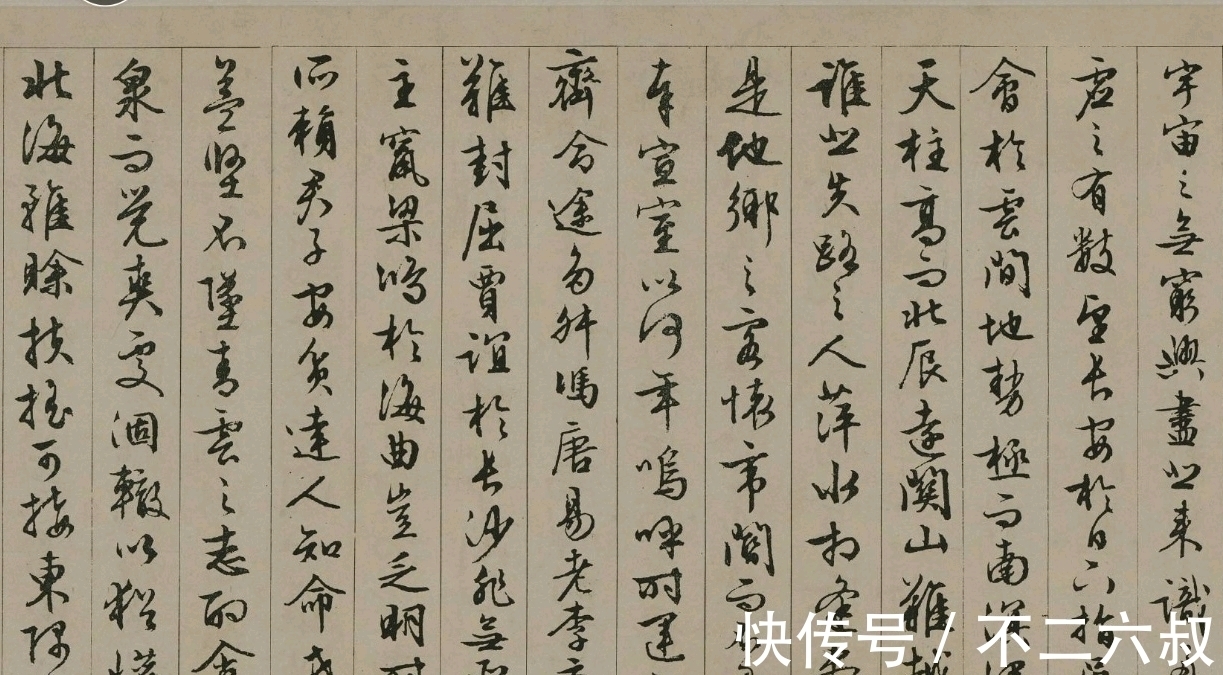 宇宙之無窮興盡悲来識
虚之有數望長安於日下指
會於雲間地勢極而南
天柱高而北辰遠關山難越
誰悲失路之人萍水相逢
是他鄉之客懷帝閽而
奉宣室以何年嗚呼時運
齊命途多舛馮唐易老李
難封屈賈誼於長沙非無
主竄梁鴻於海曲豈乏明時
所賴君子安貧達人知命老
益堅不墜青雲之志酌貪
泉而覺爽處涸轍以猶
北海雖賒扶搖可接東隅
快传号 / 不二六叔